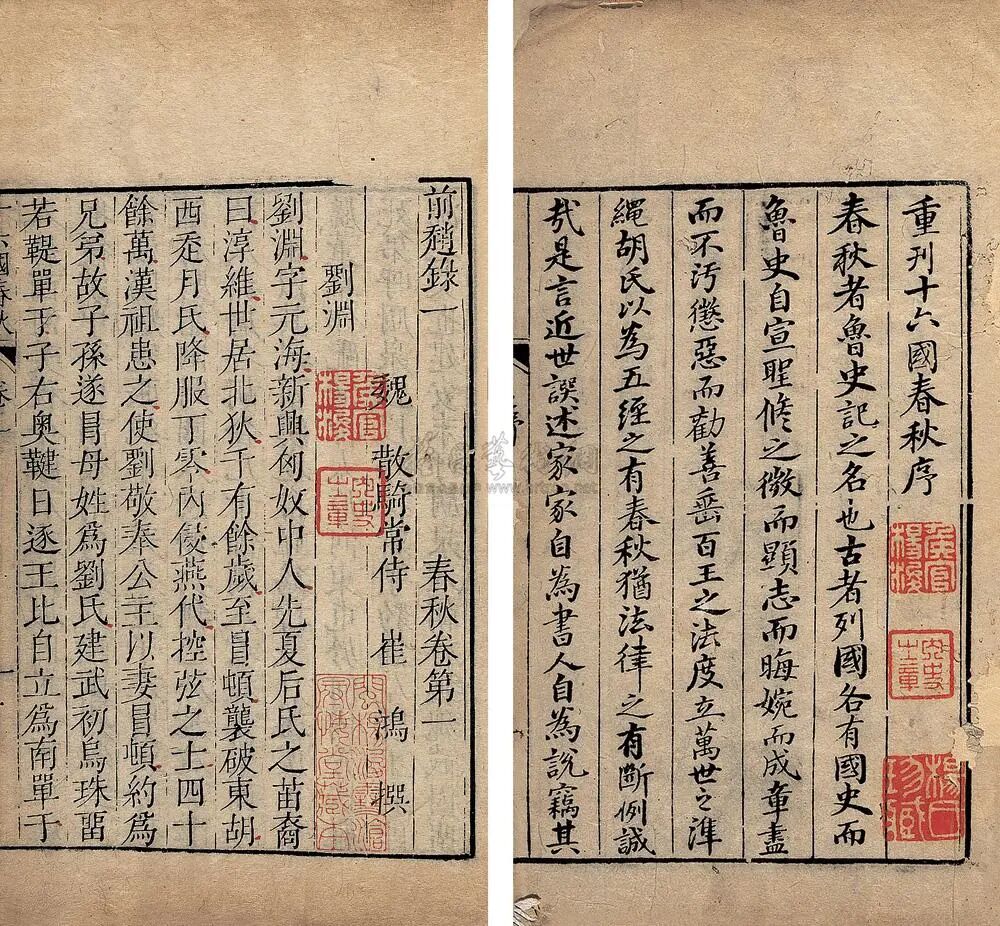 重刊十六國春秋序
春秋者魯史記之名也古者列國各有國史而
魯史自宣聖脩之微而顯志而晦婉而成章盡
而不汚懲惡而勸善垂百王之法度立萬世之準
繩胡氏以為五經之有春秋猶法律之有斷例誠
㢤是言近世誤述家家自為書人自為說竊其
侯官楊浚
前趙錄一 春秋卷第一
魏 散騎常侍 崔 鴻 撰
劉淵
侯官楊浚
閩楊浚雪滄冠悔堂藏本
劉淵字元海新興匈奴中人先夏后氏之苗裔
曰淳維世居北狄千有餘歲至冒頓襲破東胡
西走月氏降服丁零內侵燕代控弦之士四十
餘萬漢祖患之使劉敬奉公主以妻冒頓約爲
兄弟故子孫遂冒母姓爲劉氏建武初烏珠畱
若鞮單于子右奧鞬日逐王比自立爲南單于
國春秋 卷一